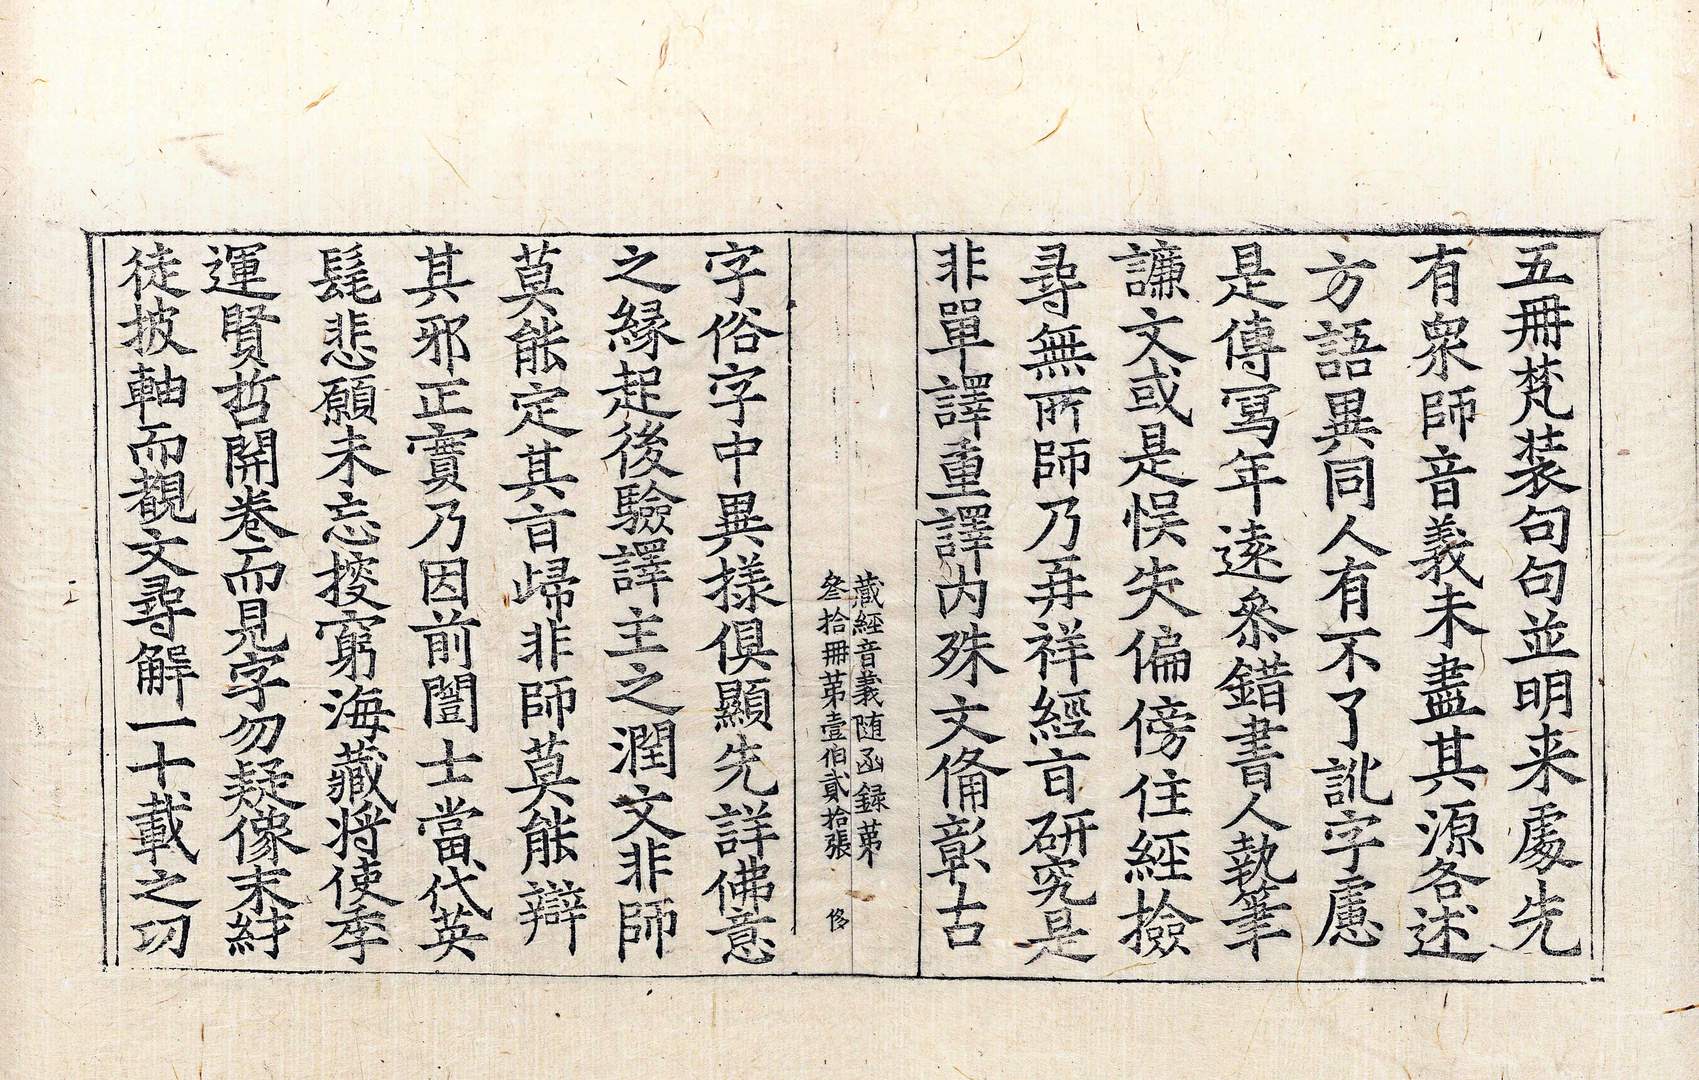 五冊梵装句句並明来處先
有衆師音義未盡其源各述
方語異同人有不了訛字慮
是傳寫年遠叅錯書人執筆
譧文或是悮失偏傍住經撿
尋無所師乃再祥經㫖研究是
非單譯重譯内殊文俻彰古
藏經音義随函録第
叁拾冊第壹伯貳拾張 侈
字俗字中異様俱顯先詳佛意
之緣起後驗譯主之潤文非師
莫能定其㫖歸非師莫能辯
其邪正實乃因前闓士當代英
髦悲願未忘㨘窮海藏將使季
運賢哲開卷而見字勿疑像末紂
徒披軸而覩文尋解一十載之㓛